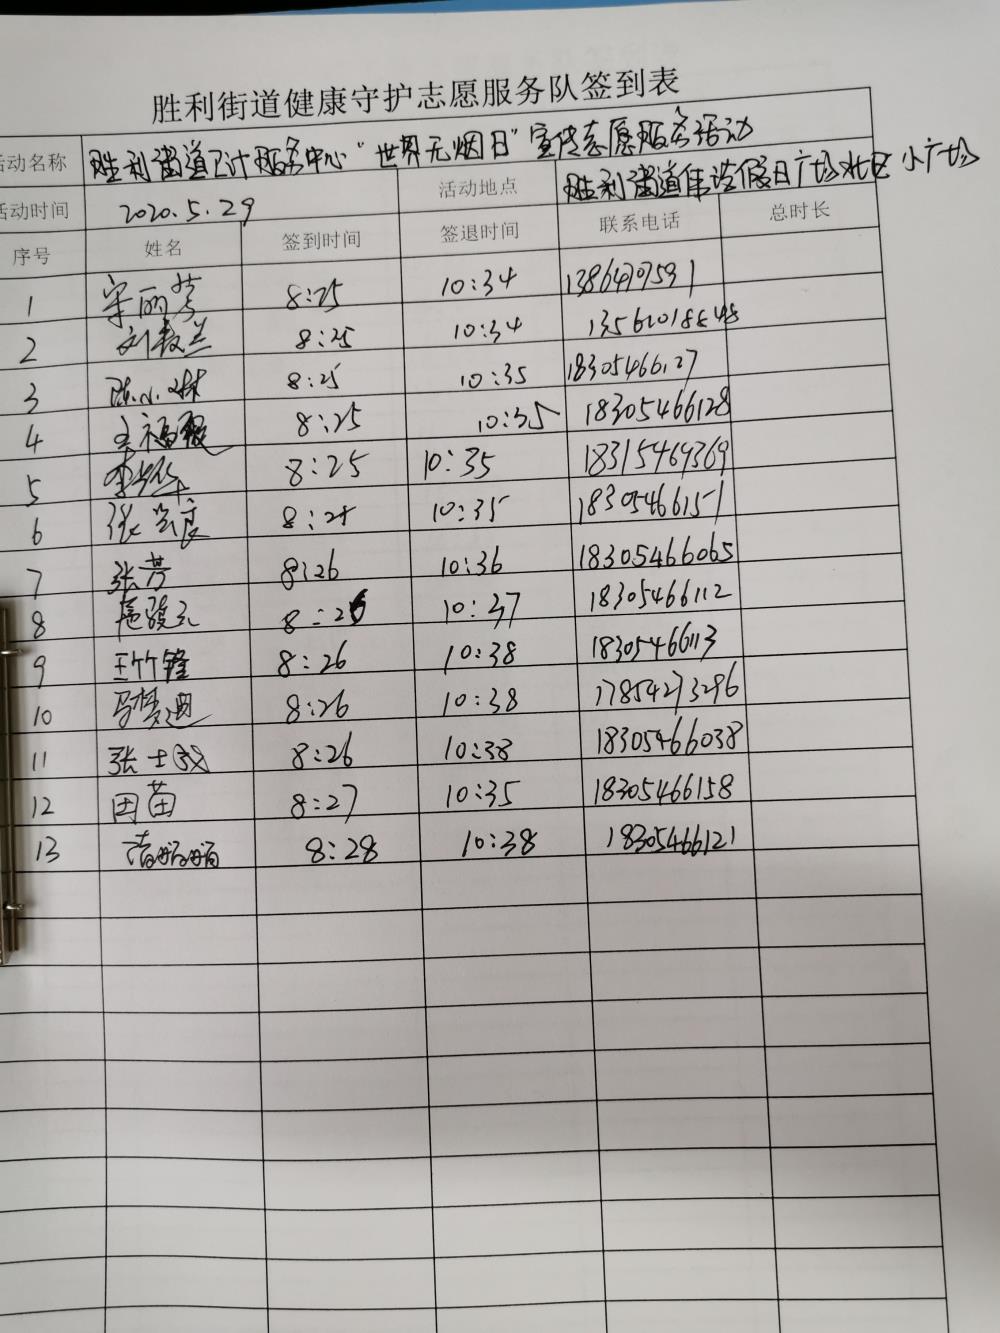 胜利街道健康守护志愿服务队签到表
活动名称 胜利街道卫计服务中心"世界无烟日"宣传志愿服务活动
活动时间 2020.5.29 活动地点 胜利街道伟浩假日广场北区小广场
序号 姓名 签到时间 签退时间 联系电话 总时长
1 宋丽芳 8:25 10:34
2 8:25 10:34
3 陈小林 8:25 10:35 18305466127
4 8:25 10:35 18305466128
5 8:25 10:35 18315469369
6 8:25 10:35 18305466151
7 张芳 8:26 10:36 18305466065
8 8:26 10:37 18305466112
9 王竹锋 8:26 10:38 18305466113
10 马梦迪 8:26 10:38 17854273296
11 张士成 8:26 10:38 18305466038
12 田苗 8:27 10:35 18305466158
13 8:28 10:38 18305466121